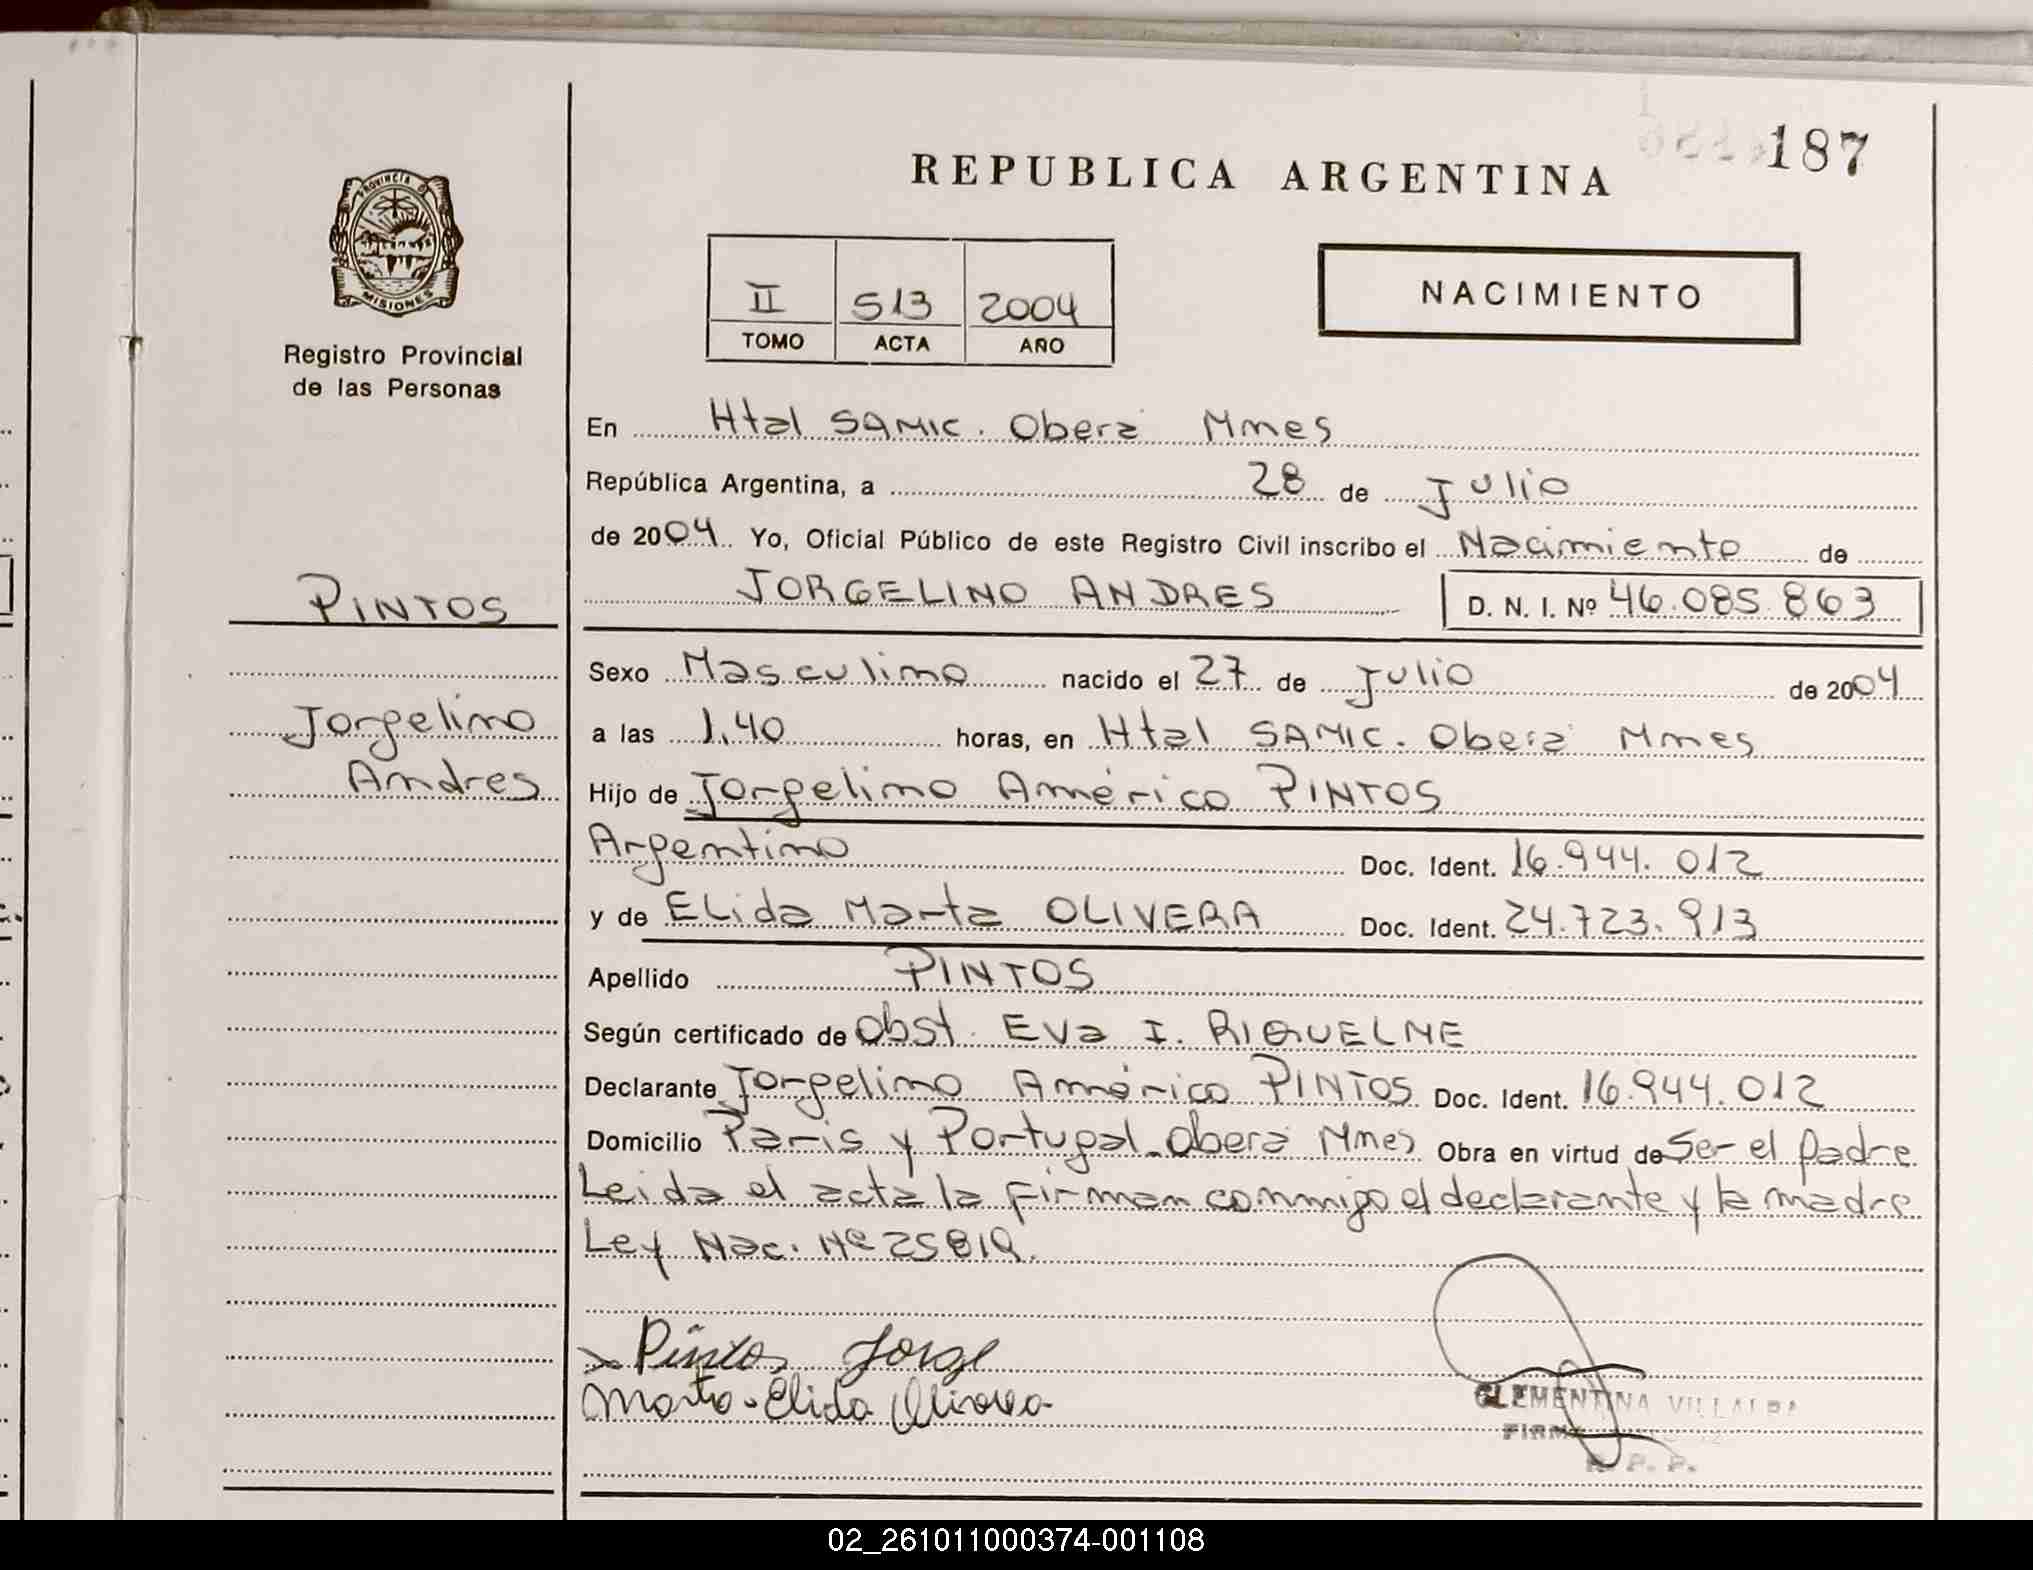 187
REPUBLICA ARGENTINA
PROVINCIA D
MISIONES
Registro Provincial
de las Personas
II 513 2004
TOMO ACTA AÑO
NACIMIENTO
En Htal SAMIC. Oberá Mnes
República Argentina, a 28 de Julio
de 2004. Yo, Oficial Público de este Registro Civil inscribo el Nacimiento de
JORGELINO ANDRES D. N. I. Nº 46.085.863
PINTOS
Jorgelino
Andres
Sexo Masculino nacido el 27 de Julio de 2004
a las 1.40 horas, en Htal SAMIC. Oberá Mnes
Hijo de Jorgelino Américo PINTOS
Argentino Doc. Ident. 16.944.012
y de ELida Marta OLIVERA Doc. Ident. 24.723.913
Apellido PINTOS
Según certificado de Obst. Eva I. RIQUELME
Declarante Jorgelino Américo PINTOS Doc. Ident. 16.944.012
Domicilio Paris y Portugal. Oberá Mnes Obra en virtud de Ser el padre
Leida el acta la firman conmigo el declarante y la madre
Ley Nac. Nº 25819.
Pintos Jorge
Marta Elida Olivera
CLEMENTINA VILLALBA
02_261011000374-001108